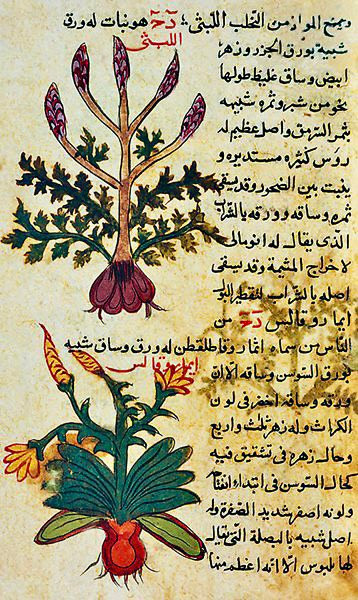 ويمنع المواد من التحلب اللبثى دح هو نبات له ورق
اللبثى
شبيه بورق الجزر وزهر
ابيض وساق غليظ طولها
نحو من شبر وثمره شبيه
بثمر السرمق واصل عظيم له
روس كثيره مستديره و
ينبت بين الصخور وقد يسقى
ثمره وساقه وورقه بالشراب
الذى يقال له انومالى
لاخراج المشيمة وقد يسقى
اصله بالشراب لتقطير البول
ايماروقالس دح من
الناس من سماه ايمارقاطلقطن له ورق وساق شبيه
ايماروقالس
بورق السوسن وساقه الا ان
ورقه وساقه اخضر فى لون
الكراث وله زهر ثلث واربع
وحال زهره فى تشقيق فيه
كحال السوسن فى ابتداء انفتاح
ولونه اصفر شديد الصفرة وله
اصل شبيه بالبصلة التى يقال
لها بلبوس الا انه اعظم منها